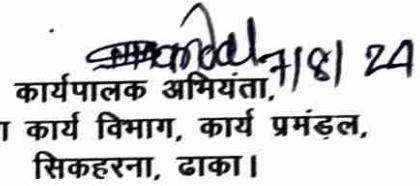 7/8/24
कार्यपालक अभियंता,
कार्य विभाग, कार्य प्रमंडल,
सिकहरना, ढाका।